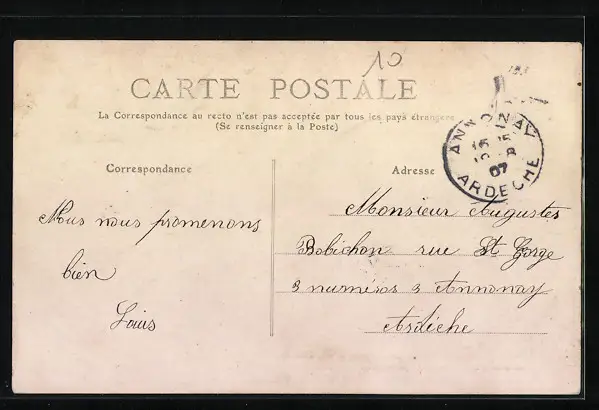 10
CARTE POSTALE
La Correspondance au recto n'est pas acceptée par tous les pays étrangers
(Se renseigner à la Poste)
Correspondance
Adresse
ANNONAY
07
ARDECHE
Nous nous promenons
bien
Louis
Monsieur Augustes
Bobichon rue St Gorge
3 numéros 3 Annonay
Ardèche